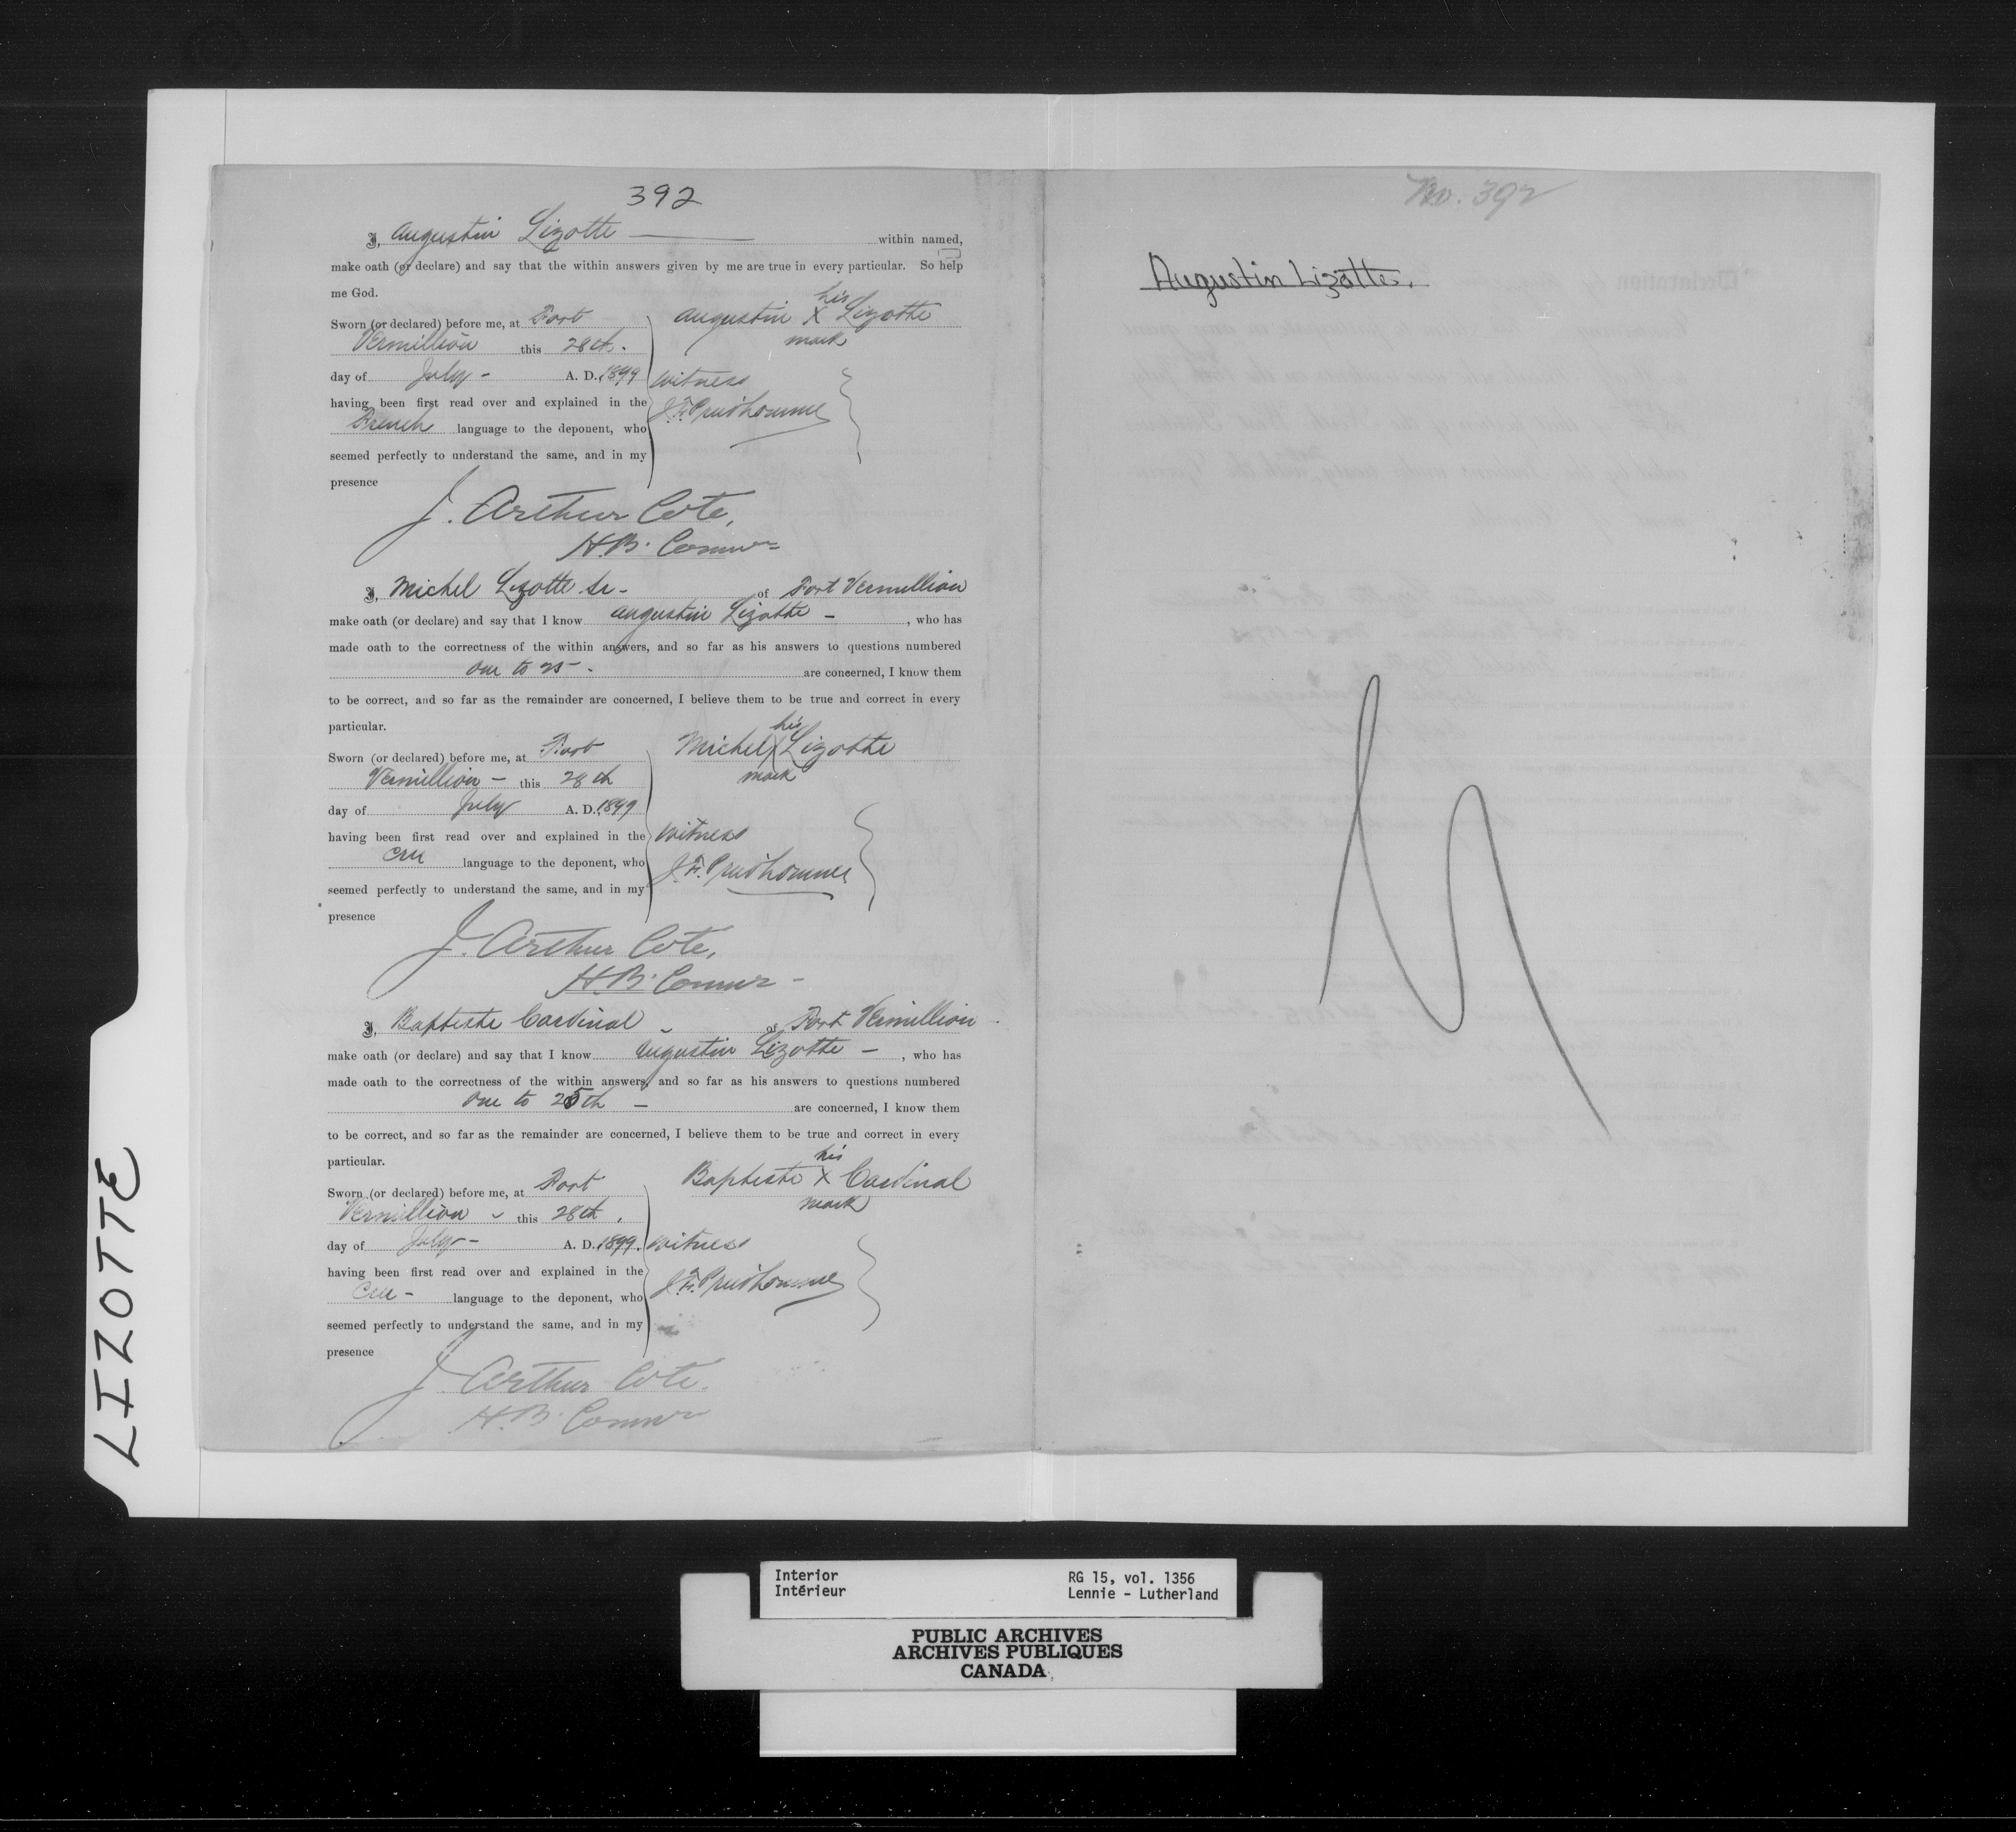 392
I, Augustin Lizotte within named,
make oath (or declare) and say that the within answers given by me are true in every particular. So help
me God.
Sworn (or declared) before me, at Fort
Vermillion this 28th.
day of July - A. D. 1899
having been first read over and explained in the
French language to the deponent, who
seemed perfectly to understand the same, and in my
presence
Augustin his X mark Lizotte
witness
J. F. Prud'homme
J. Arthur Cote,
H.B. Commr
I, Michel Lizotte Sr - of Fort Vermillion
make oath (or declare) and say that I know Augustin Lizotte - , who has
made oath to the correctness of the within answers, and so far as his answers to questions numbered
one to 25 - . are concerned, I know them
to be correct, and so far as the remainder are concerned, I believe them to be true and correct in every
particular.
Sworn (or declared) before me, at Fort
Vermillion - this 28th
day of July A. D. 1899
having been first read over and explained in the
Cree language to the deponent, who
seemed perfectly to understand the same, and in my
presence
Michel his X mark Lizotte
witness
J. F. Prud'homme
J. Arthur Cote,
H.B. Commr -
I, Baptiste Cardinal - of Fort Vermillion -
make oath (or declare) and say that I know Augustin Lizotte - , who has
made oath to the correctness of the within answers, and so far as his answers to questions numbered
one to 25th - are concerned, I know them
to be correct, and so far as the remainder are concerned, I believe them to be true and correct in every
particular.
Sworn (or declared) before me, at Fort
Vermillion - this 28th.
day of July - A. D. 1899.
having been first read over and explained in the
Cree - language to the deponent, who
seemed perfectly to understand the same, and in my
presence
Baptiste his X mark Cardinal
witness
J. F. Prud'homme
J. Arthur Cote.
H.B. Commr
No. 392
Augustin Lizotte.
LIZOTTE
Interior
Intérieur
RG 15, vol. 1356
Lennie - Lutherland
PUBLIC ARCHIVES
ARCHIVES PUBLIQUES
CANADA